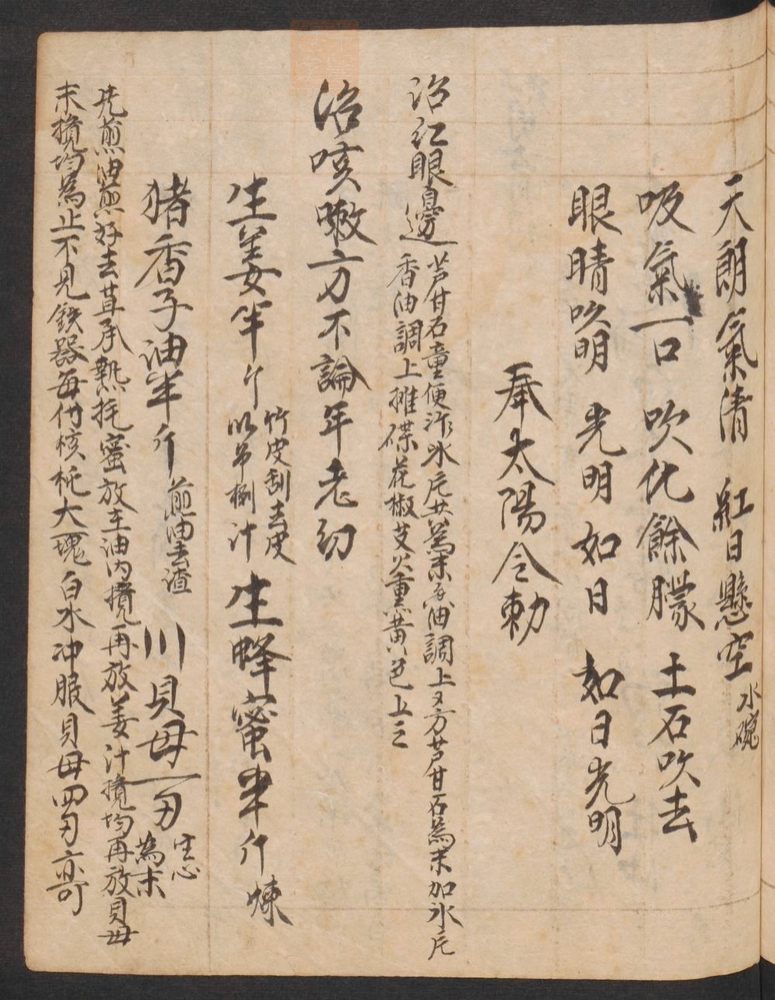 天朗氣清 紅日懸空 水碗
吸氣一口 吹化餘朦 土石吹去
眼睛吹明 光明如日 如日光明
奉太陽令勅
治紅眼邊 芦甘石童便淬氷片共為末香油調上又方芦甘石為末加氷片
香油調上摊碟花椒艾火熏黃色上之
治咳嗽方不論年老幻
生姜半斤 竹皮刮去皮
以吊捌汁 生蜂蜜半斤煉
猪香子油半斤 煎油去渣 川貝母一両 去心
為末
先煎油煎好去其承熱抂蜜放在油内攪再放姜汁攪均再放貝母
末攪均為止不見鉄器每付核桃大一塊白水冲服貝母四両亦可